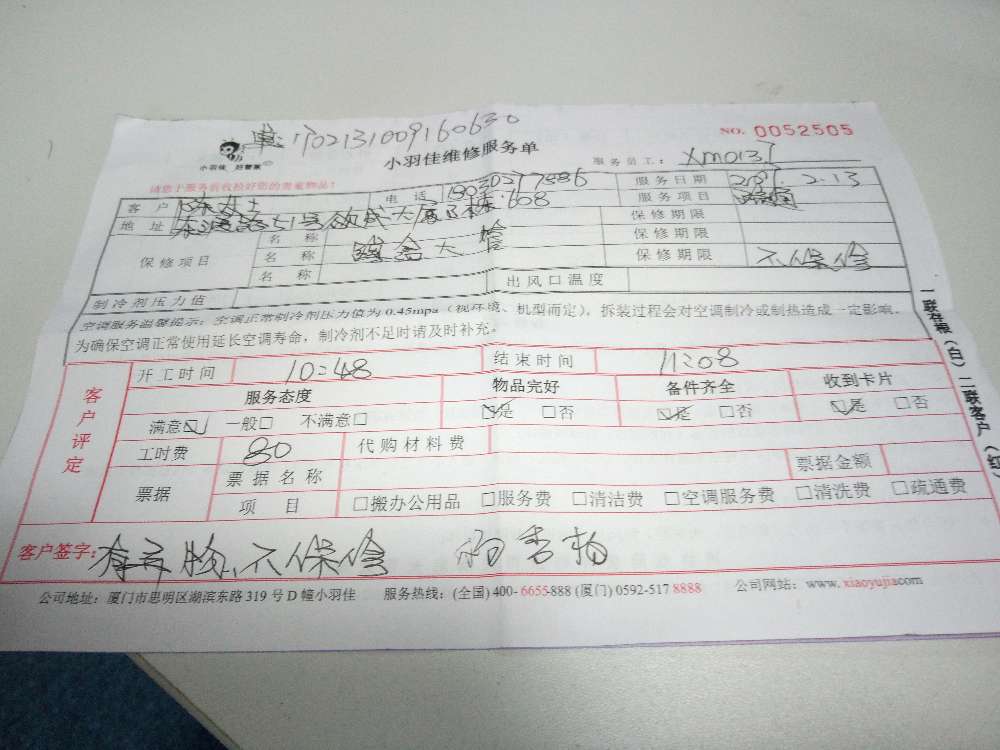 单: 1702131009160630
NO. 0052505
小羽佳 好管家
小羽佳维修服务单
服务员工: XM0137
请您于服务前收捡好您的贵重物品!
客户 陈女士 电话 服务日期 2017.2.13
地址 51号 大厦 608 服务项目
保修项目 名称 保修期限
名称 大 保修期限
名称 保修期限 不保修
制冷剂压力值 出风口温度
空调服务温馨提示: 空调正常制冷剂压力值为0.45mpa (视环境、机型而定), 拆装过程会对空调制冷或制热造成一定影响.
为确保空调正常使用延长空调寿命, 制冷剂不足时请及时补充。
客户评定
开工时间 10:48 结束时间 11:08
服务态度 物品完好 备件齐全 收到卡片
满意☑ 一般□ 不满意□ ☑是 □否 ☑是 □否 ☑是 □否
工时费 80 代购材料费
票据 票据名称 票据金额
项目 □搬办公用品 □服务费 □清洁费 □空调服务费 □清洗费 □疏通费
客户签字: 有异物、不保修
公司地址: 厦门市思明区湖滨东路 319 号 D 幢小羽佳 服务热线: (全国) 400-6655-888 (厦门) 0592-517 8888 公司网站: www.xiaoyujia.com
一联存根 (白) 二联客户 (红)